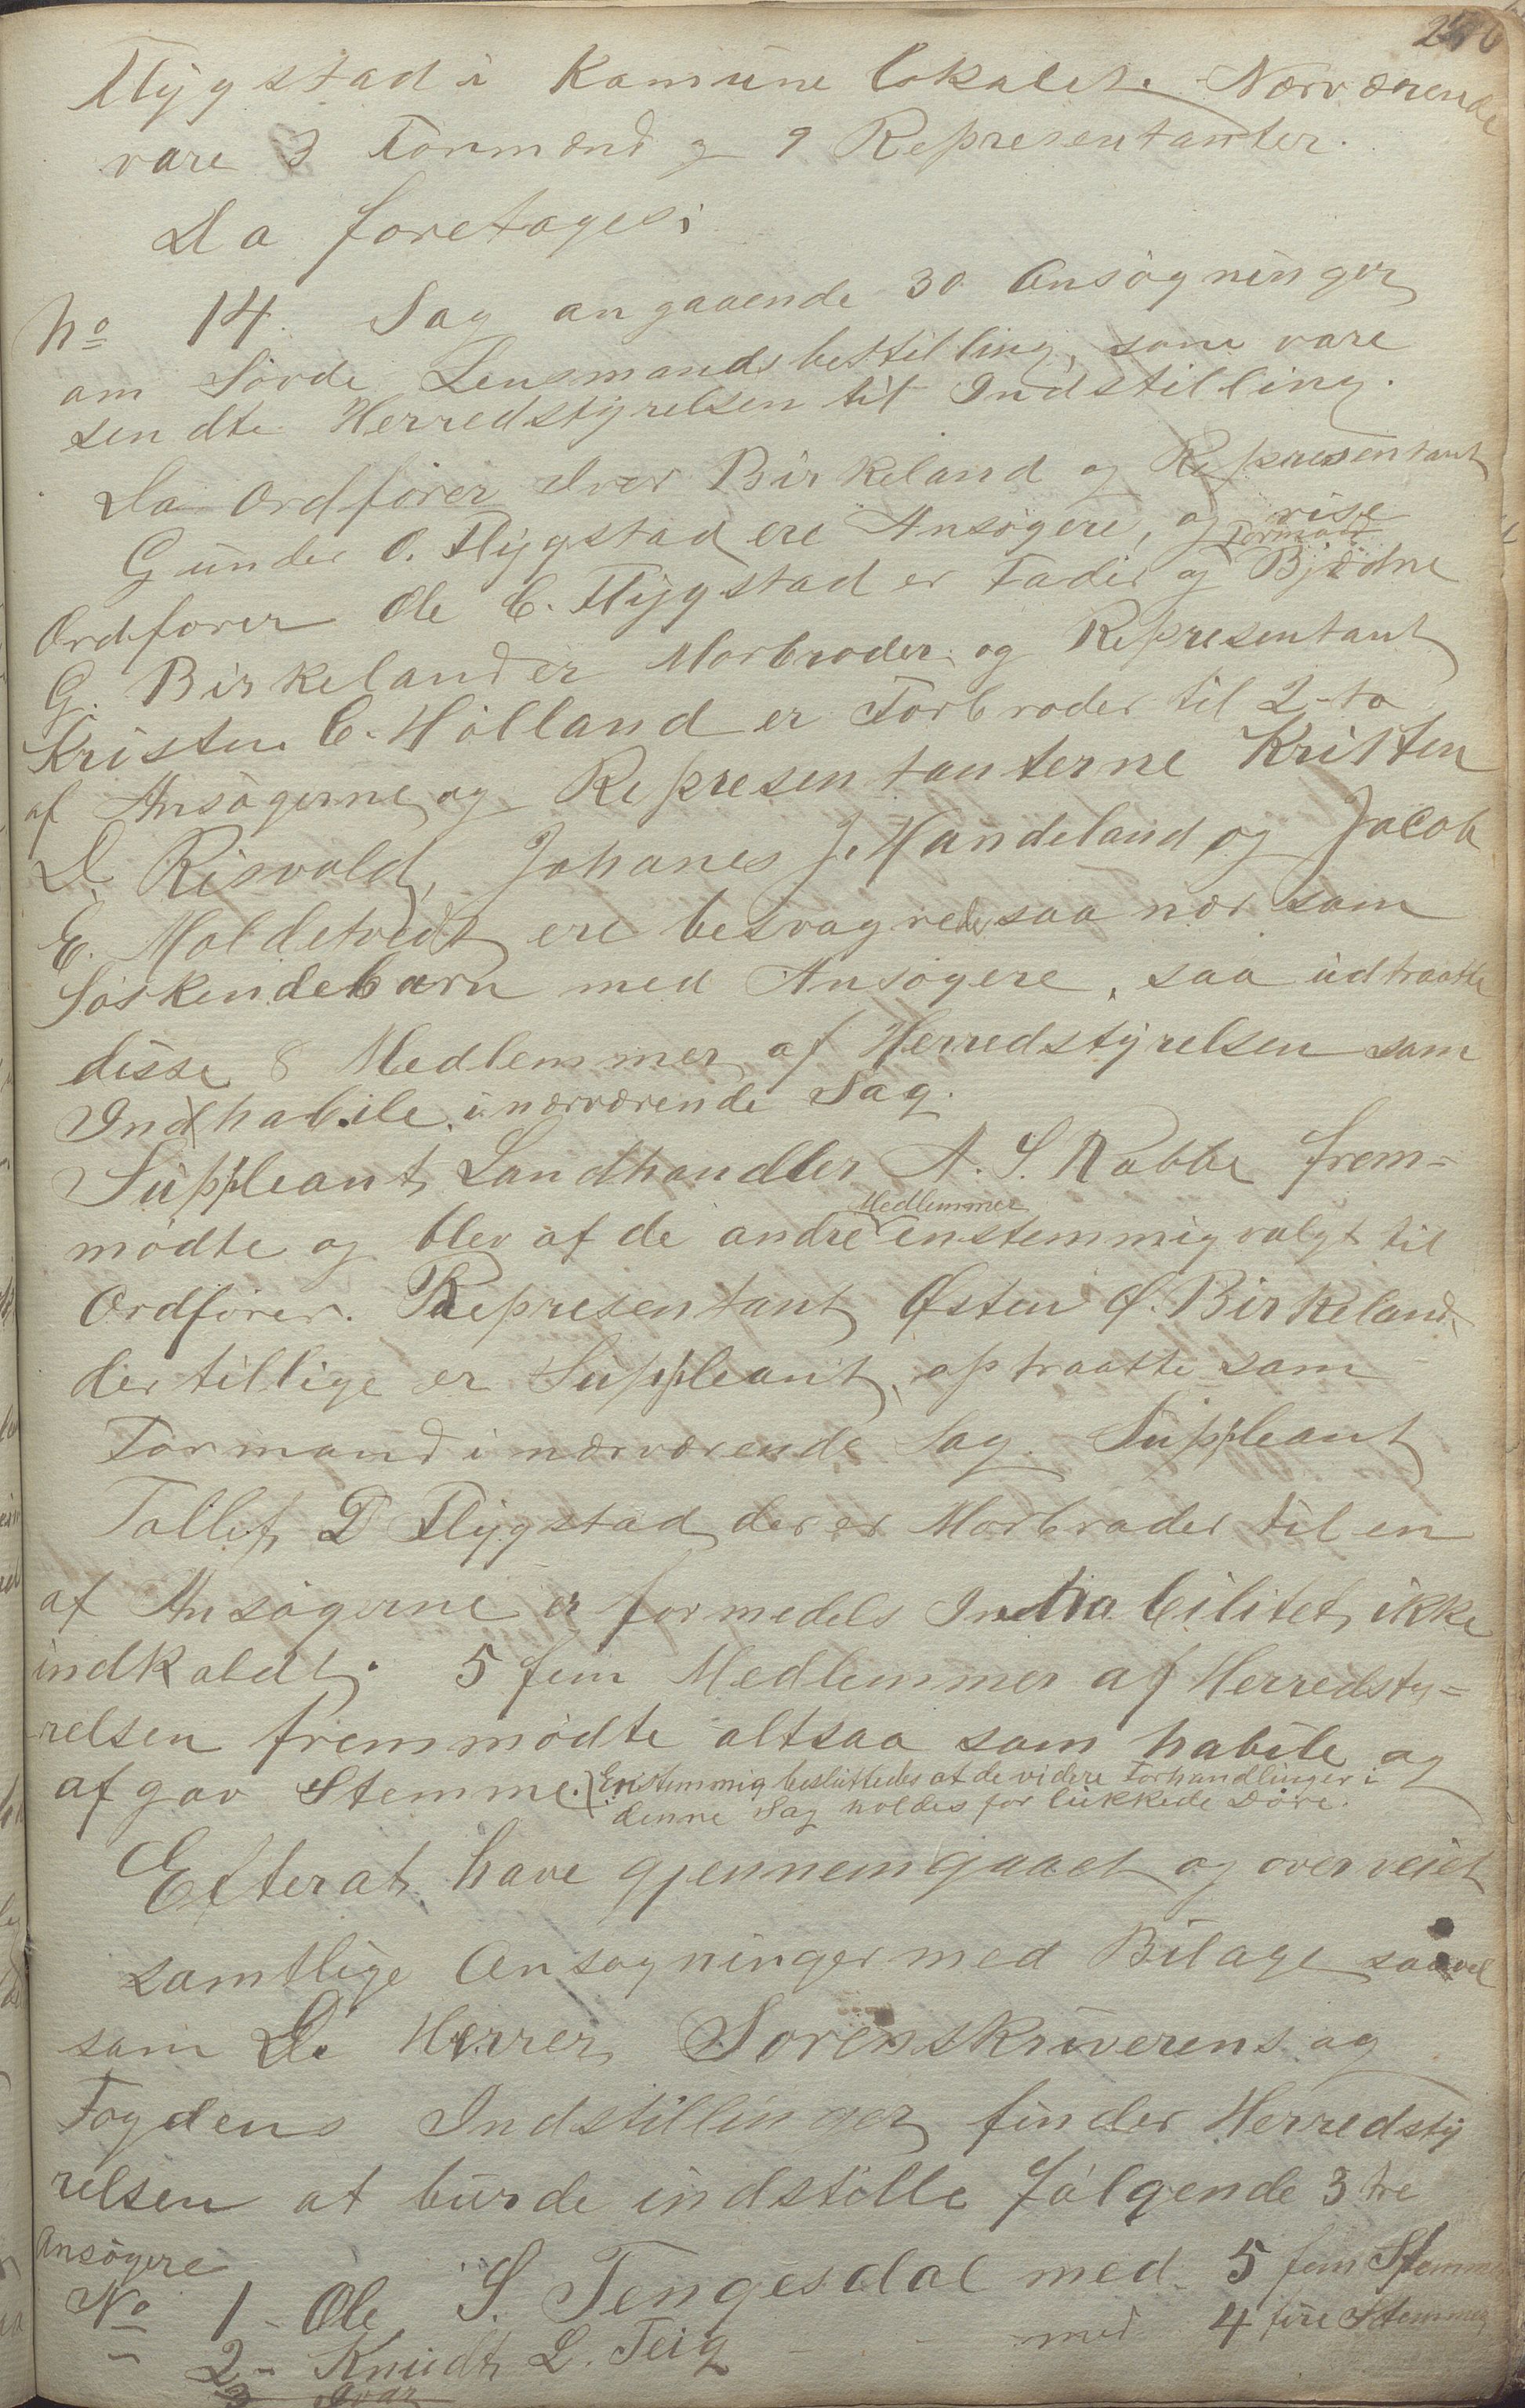 Flÿgstad i Komúne lokalet. Nærværende
vare 3 Formænd og 9 Representanter.
Da foretoges;
No 14. Sag angaaende 30 Ansøgninger
om Sovde Lensmandsbestilling, som vare
sendte Herredstÿrelsen til Indstilling.
Da Ordfører Iver Birkeland og Representant
Gúnder O. Flÿgstad ere Ansøgere, og vise
Ordfører Ole C. Flÿgstad er Fader og Formand Bjødne
G. Birkeland er Morbroder og Representant
Kristen C. Hølland er Forbroder til 2-to
af Ansøgerne og Representanterne Kristen
D. Risvold, Johanes J. Handeland og Jacob
E. Moldetvedt ere besvogrede saa nær som
Søskendebarn med Ansøgere, saa údtraatte
disse 8 Medlemmer af Herredstÿrelsen som
Indhabile i nærværende Sag.
Súppleant Landhandler A. S. Rabbe frem-
mødte og blev af de andre Medlemmer enstemmig valgt til
Ordfører. Representant Østen Ø. Birkeland
der tillige er Súppleant, optraatte som
Formand i nærværende Sag. Súppleant
Tollef D Flÿgstad der er Morbroder til en
af Ansøgerne er formedels Inhabilitet ikke
indkaldt. 5 fem Medlemmer af Herredsty-
relsen fremmødte altsaa som habile og
afgav Stemme. Enstemmig beslúttedes at de videre Forhandlinger i
denne Sag holdes for lúkkede Døre.
Efterat have gjennemgaaet og overveiet
samtlige Ansøgninger med Bilage saavel
som De Herrer Sorenskriverens og
Fogdens Indstillinger finder Herredstÿ
relsen at búrde indstille følgende 3 tre
Ansøgere
No 1- Ole S. Tengesdal med 5 fem Stemmer
" 2- Knúdt L. Teig - med 4 fire Stemmer